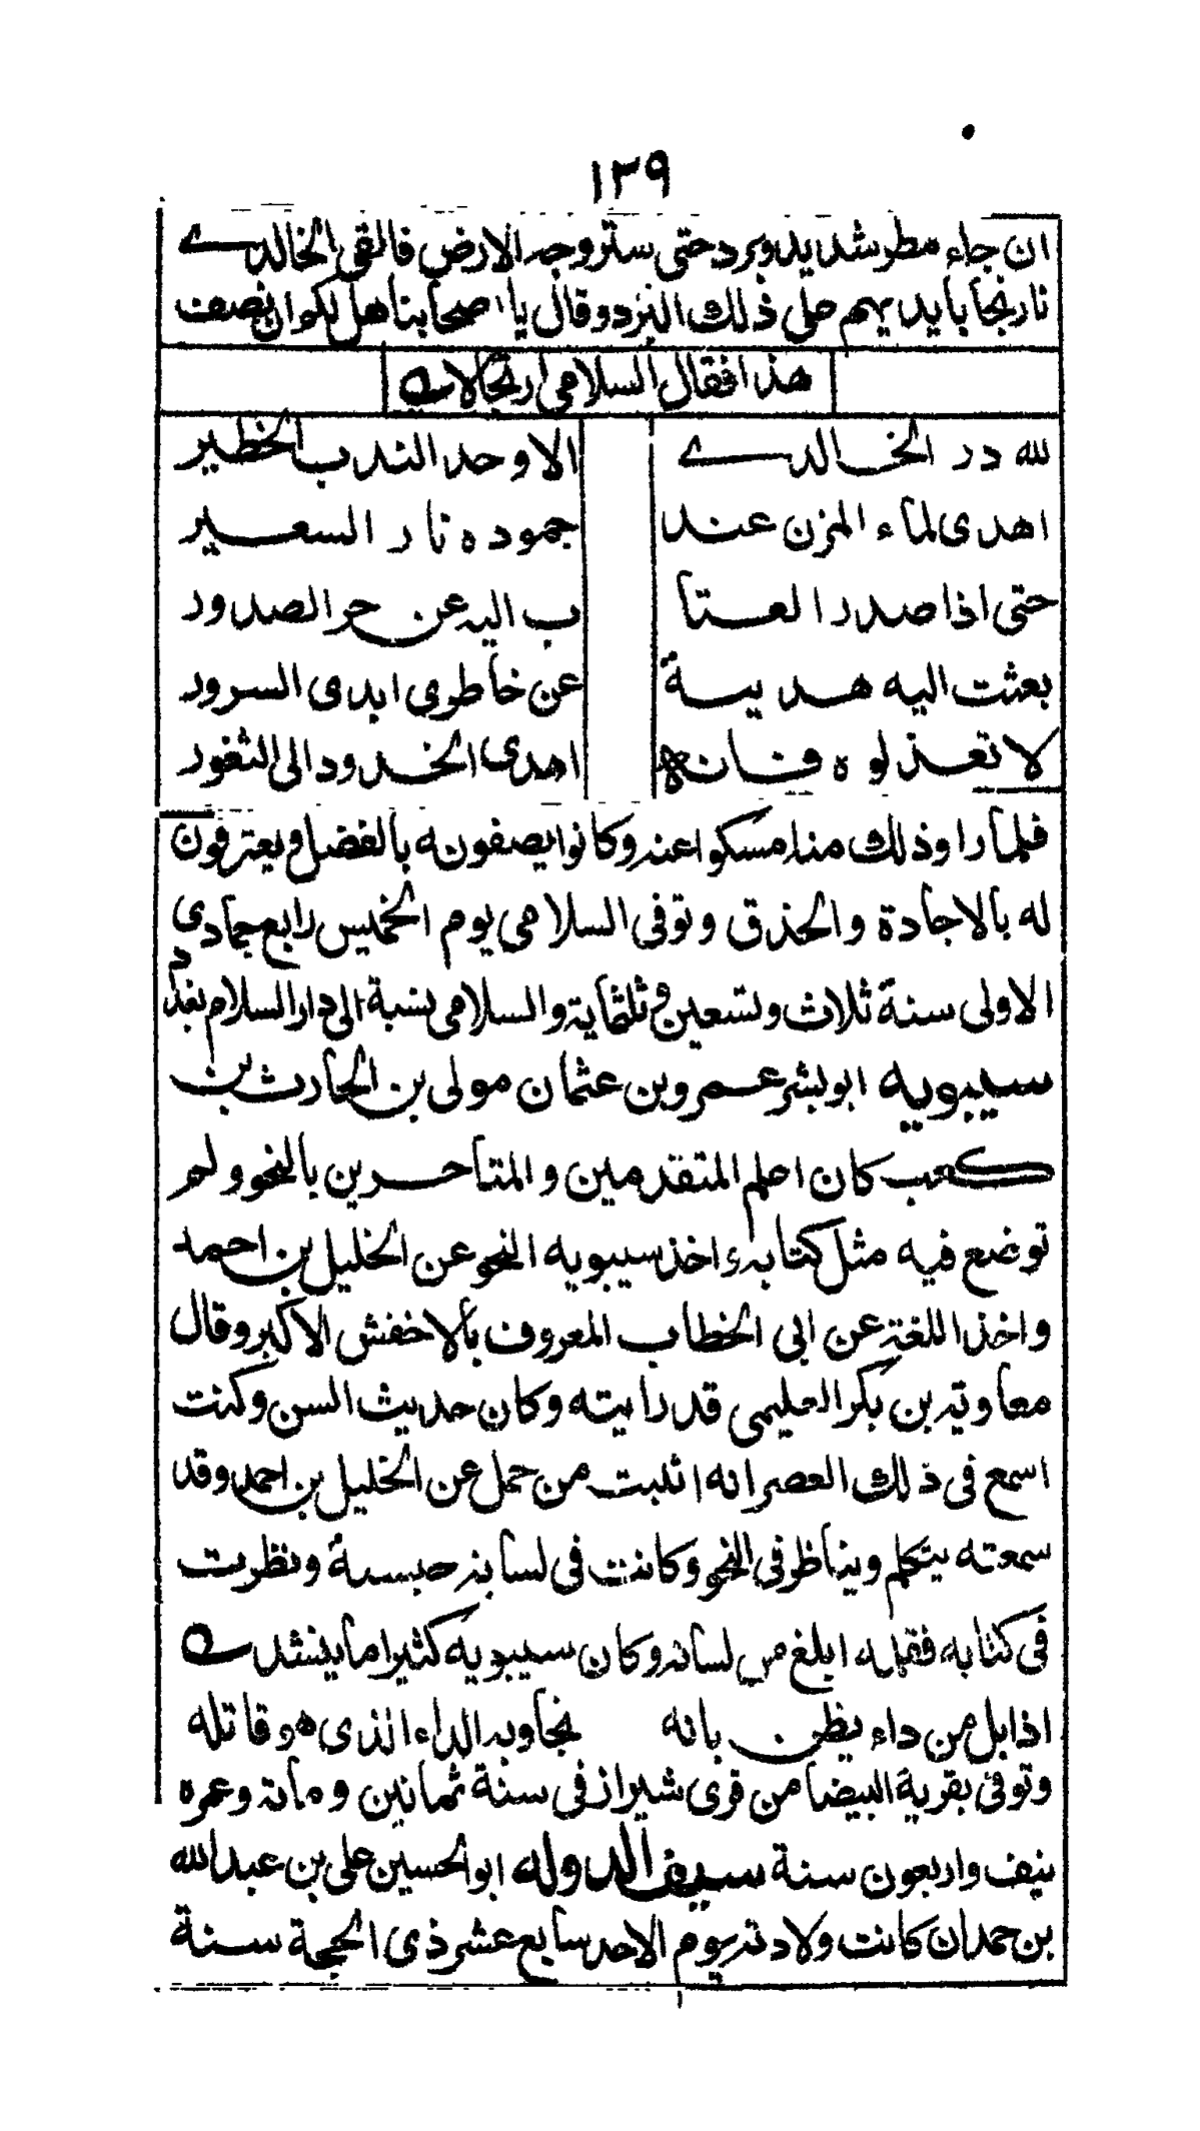 ١٣٩
ان جاء مطر شديد وبرد حتى ستر وجه الارض فالقى الخالدے
نارنجا بايديهم على ذلك البرد وقال يا اصحابنا هل لكم ان نصف
هذا فقال السلامى ارتجالا
لله در الخالدے الاوحد الندب الخطير
اهدى لماء المزن عند جموده نار السعير
حتى اذا صدر العتا ب اليه عن حر الصدور
بعثت اليه هدية عن خاطرى ايدى السرور
لا تعذلوه فانه اهدى الخدود الى الثغور
فلما راوا ذلك منه امسكوا عنه وكانوا يصفونه بالفضل ويعترفون
له بالاجادة والحذق وتوفى السلامى يوم الخميس رابع جمادي
الاولى سنة ثلاث وتسعين وثلثماية والسلامى نسبة الى دار السلام بغداد
سيبويه ابو بشر عمرو بن عثمان مولى بن الحارث بن
كعب كان اعلم المتقدمين والمتاخرين بالنحو ولم
توضع فيه مثل كتابه اخذ سيبويه النحو عن الخليل بن احمد
واخذ اللغة عن ابى الخطاب المعروف بالاخفش الاكبر وقال
معاوية بن بكر العليمى قد رايته وكان حديث السن وكنت
اسمع فى ذلك العصر انه اثبت من حمل عن الخليل بن احمد وقد
سمعته يتكلم ويناظر فى النحو وكانت فى لسانه حبسة ونظرت
فى كتابه فقلمه ابلغ من لسانه وكان سيبويه كثيرا ما ينشد
اذا بل من داء يظن بانه نجا وبه الداء الذى هو قاتله
وتوفى بقرية البيضا من قرى شيراز فى سنة ثمانين ومائة وعمره
نيف واربعون سنة سيف الدوله ابو الحسين على بن عبد الله
بن حمدان كانت ولادته يوم الاحد سابع عشر ذى الحجة سنة